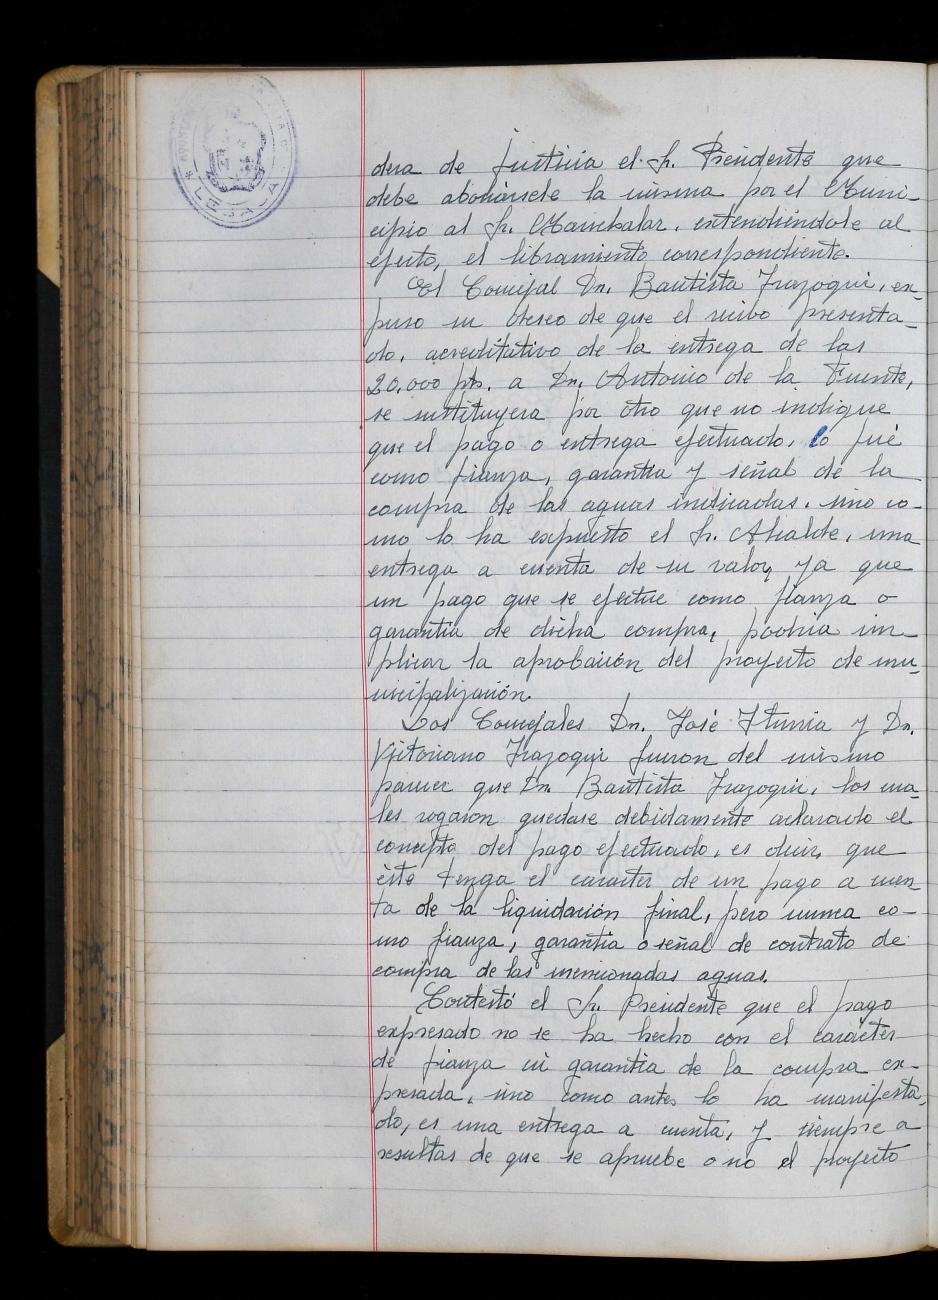 LESACA
dera de justicia el Sr. Presidente que
debe abonársele la misma por el Muni-
cipio al Sr. Marichalar, extendiéndole al
efecto, el libramiento correspondiente.
El Concejal Dn. Bautista Irazoqui, ex-
puso su deseo de que el recibo presenta-
do, acreditativo de la entrega de las
20.000 pts. a Dn. Antonio de la Fuente,
se sustituyera por otro que no indique
que el pago o entrega efectuado, lo fué
como fianza, garantia y señal de la
compra de las aguas indicadas, sino co-
mo lo ha expuesto el Sr. Alcalde, una
entrega a cuenta de su valor, ya que
un pago que se efectue como fianza o
garantia de dicha compra, podria im-
plicar la aprobación del proyecto de mu-
nicipalización.
Los Concejales Dn. José Iturria y Dn.
Vitoriano Irazoqui fueron del mismo
parecer que Dn. Bautista Irazoqui, los cua-
les rogaron quedase debidamente aclarado el
concepto del pago efectuado, es decir, que
éste tenga el caracter de un pago a cuen
ta de la liquidación final, pero nunca co-
mo fianza, garantia o señal de contrato de
compra de las mencionadas aguas.
Contestó el Sr. Presidente que el pago
expresado no se ha hecho con el carácter
de fianza ni garantia de la compra ex-
presada, sino como antes lo ha manifesta-
do, es una entrega a cuenta, y siempre a
resultas de que se apruebe o no el proyecto